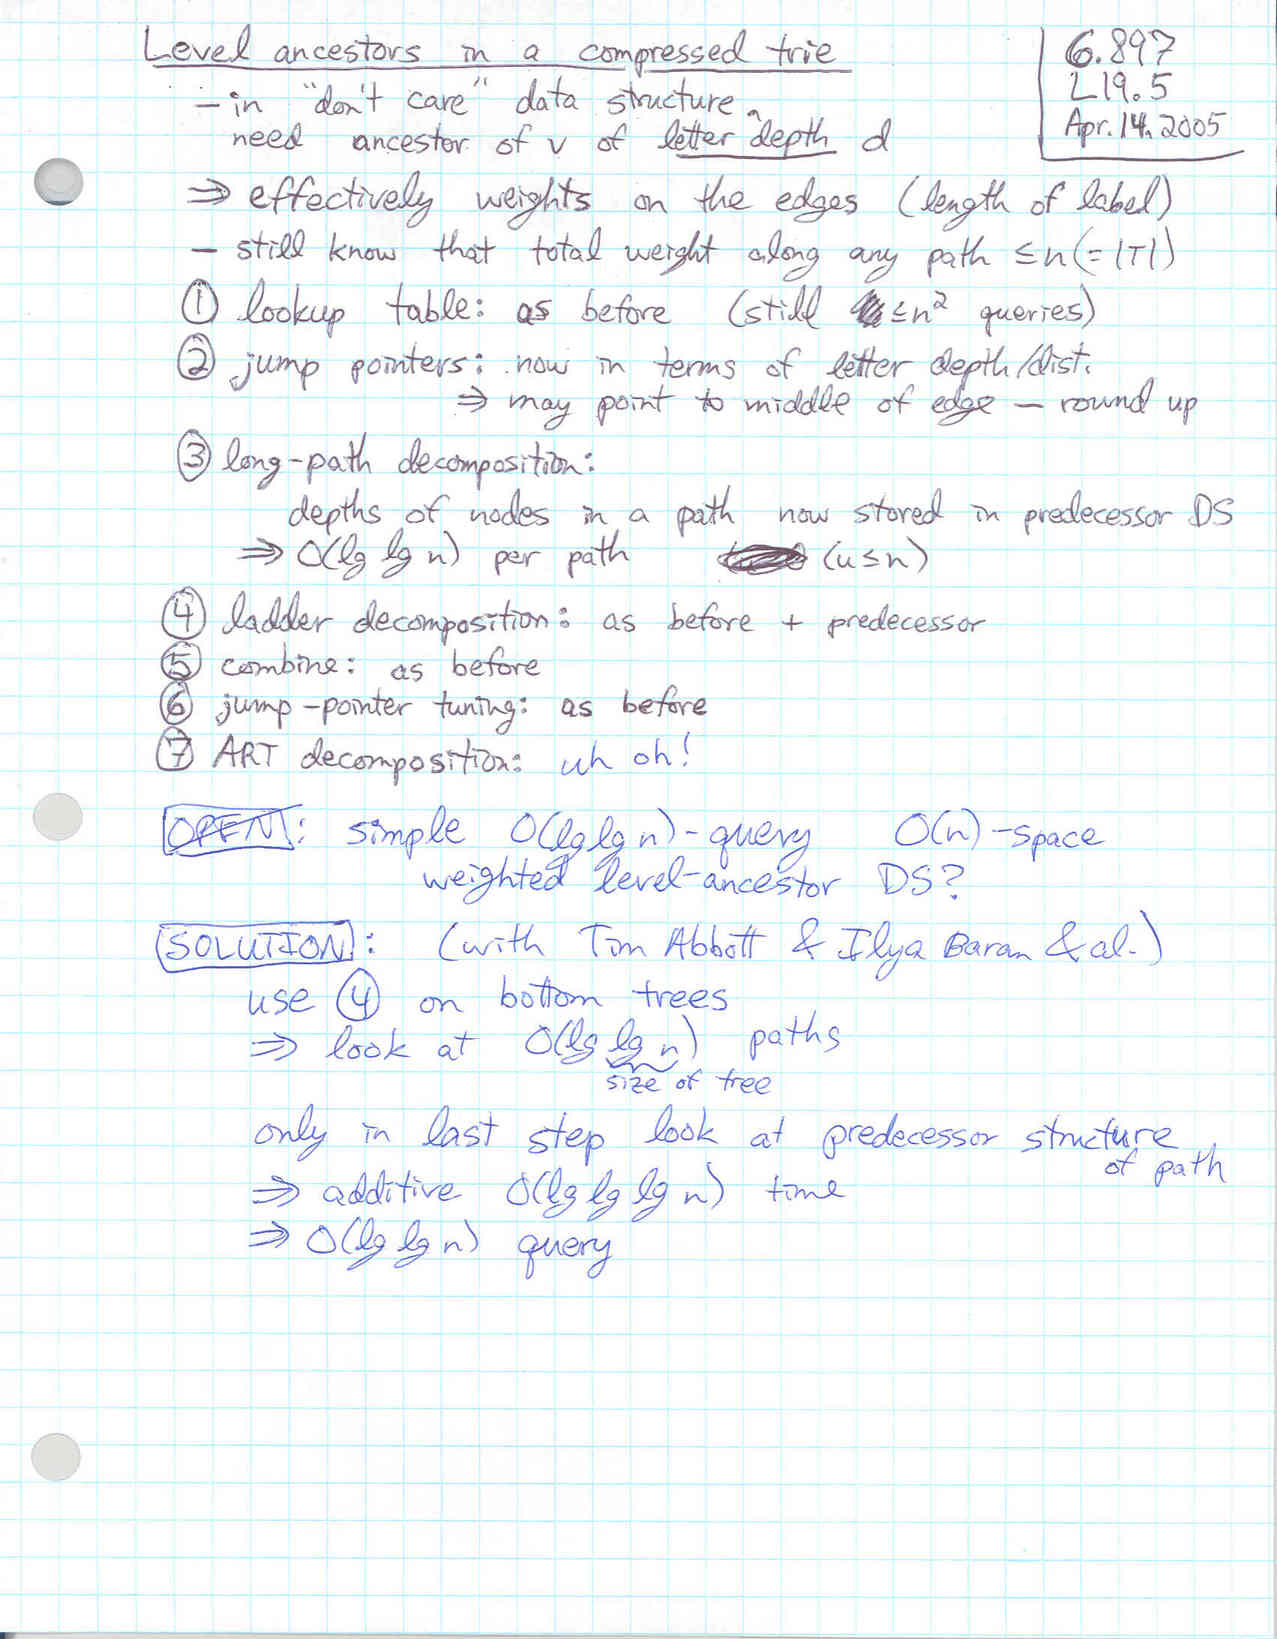 Level ancestors in a compressed trie
6.897
L19.5
Apr. 14, 2005
- in "don't care" data structure,
need ancestor of v of letter depth d
⇒ effectively weights on the edges (length of label)
- still know that total weight along any path ≤ n (= |T|)
① lookup table: as before (still ≤ n² queries)
② jump pointers: now in terms of letter depth/dist.
⇒ may point to middle of edge - round up
③ long-path decomposition:
depths of nodes in a path now stored in predecessor DS
⇒ O(lg lg n) per path (u ≤ n)
④ ladder decomposition: as before + predecessor
⑤ combine: as before
⑥ jump-pointer tuning: as before
⑦ ART decomposition: uh oh!
OPEN: simple O(lg lg n)-query O(n)-space
weighted level-ancestor DS?
SOLUTION: (with Tim Abbott & Ilya Baran & al.)
use ④ on bottom trees
⇒ look at O(lg lg n) paths
size of tree
only in last step look at predecessor structure
of path
⇒ additive O(lg lg lg n) time
⇒ O(lg lg n) query